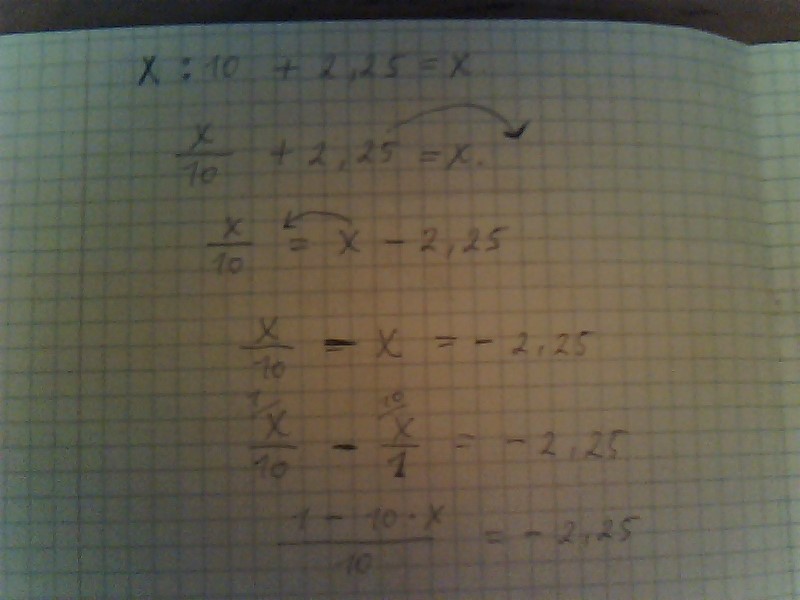 x : 10 + 2,25 = x
x/10 + 2,25 = x.
x/10 = x - 2,25
x/10 - x = - 2,25
1/ x/10 - 10/ x/1 = - 2,25
1 - 10 · x / 10 = - 2,25